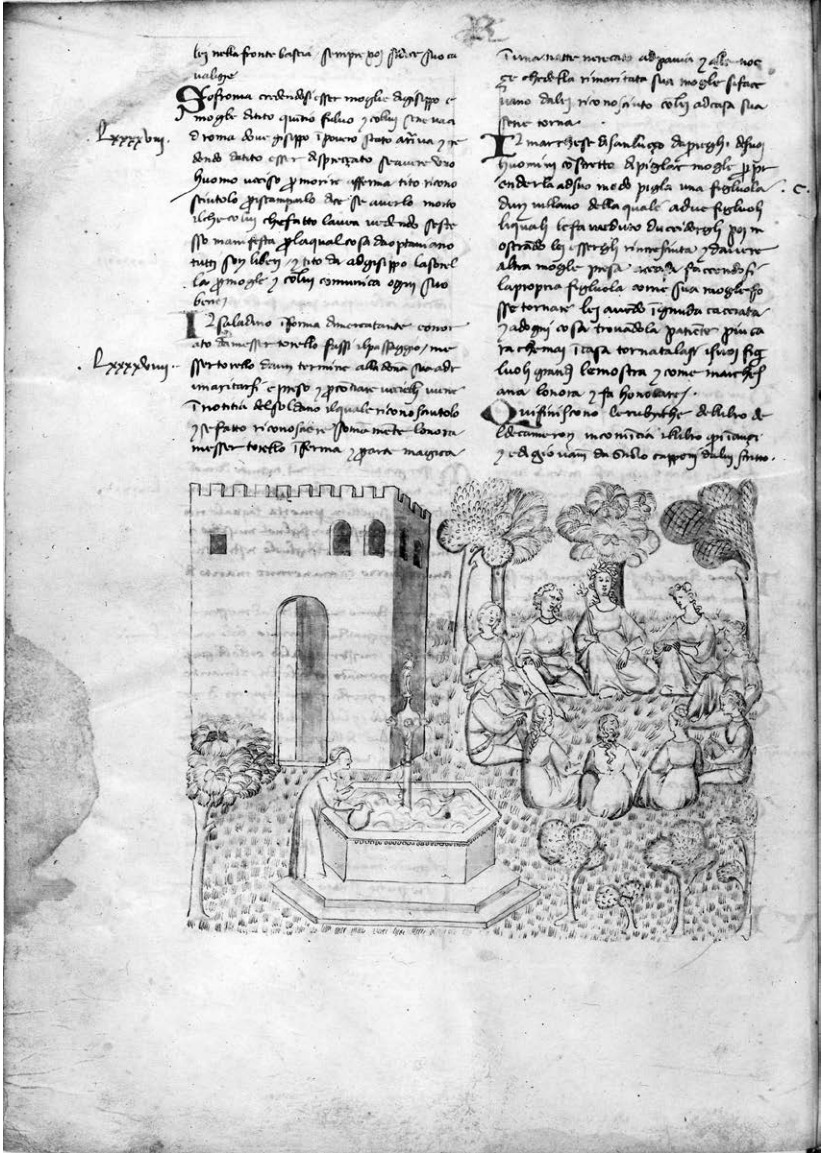 lei nella fronte bascia sempre poi si dice suo ca
valiere
Sofronia credendosi esser moglie di gisippo e
Lxxxxviii.
moglie di tito quintio fulvo y collui sene va ci
a roma dove gisippo i povero stato arriva y cre
dendo da tito esser disprezato se avere uno
huomo ucciso p morire afferma tito ricono
sciutolo p iscamparlo dice se averlo morto
il che colui che fatto lavea vedendo se ste
sso manifesta p la qual cosa da optaviano
tutti son liberi y tito da ad gisippo la sorel
la p moglie y collui comunica ogni suo
bene
Il saladino i forma di mercatante e onor
ato da messer torello fassi il passaggio / me
Lxxxxviiii.
sser torello da un termine alla donna sua ad ri
maritarsi e preso y p conciare uccelli viene
i notitia del soldano il quale riconosciutolo
y se fatto riconoscere somma mente lonora
messer torello i ferma y p arte magica
i una notte ne recato ad pavia y alle noç
çe che della rimaritata sua moglie si face
vano da lei riconosciuto collei ad casa sua
sene torna
Il marchese di sanluzo da prieghi de suoi
huomini costretto di pigliar moglie p pr
C.
enderla ad suo modo piglia una figliuola
dun villano della quale a due figliuoli
li quali le fa veduto du ccidergli poi m
ostrando lei essergli rincresciuta y davere
altra moglie presa a casa faccendosi
la propria figliuola come sua moglie fo
sse tornare lei avendo ignuda cacciata
y ad ogni cosa trovandola patiente piu ca
ra che mai i casa tornatalasi i suoi fig
luoli grandi le mostra y come march
ana lonora y fa honorare /
Qui finiscono le rubriche de libro de
l decameron incomincia i libro
y e di giovanni capponi